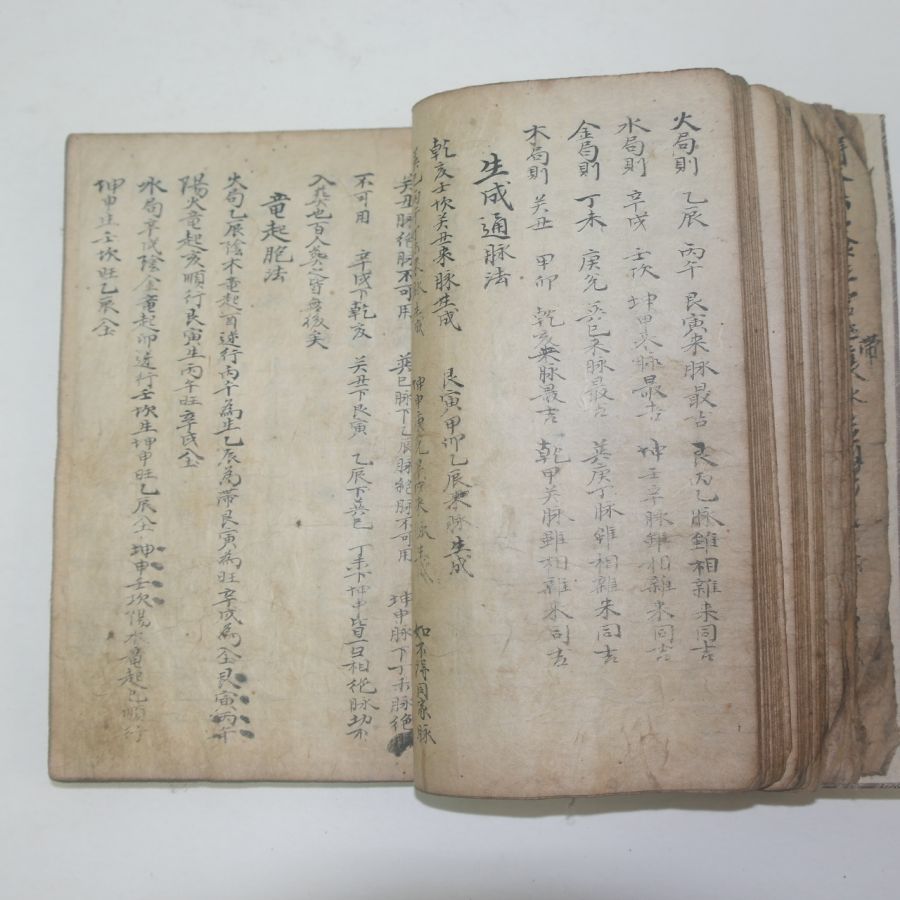 火局則 乙辰 丙午 艮寅来脉最吉 艮丙乙脉雖相雜来同吉
水局則 辛戌 壬坎 坤申来脉最吉 坤壬辛脉雖相雜来同吉
金局則 丁未 庚兌 巽巳来脉最吉 巽庚丁脉雖相雜来同吉
木局則 癸丑 甲卯 乾亥来脉最吉 乾甲癸脉雖相雜来同吉
生成通脉法
乾亥壬坎癸丑来脉生成 艮寅甲卯乙辰来脉生成
如不得同家脉
癸丑脉絶脉不可用 巽巳脉下乙辰脉絶脉不可用 坤申脉下丁未脉絶脉
不可用 辛戌下乾亥 癸丑下艮寅 乙辰下巽巳 丁未下坤申皆曰相絶脉切不
入葬也百人葬之皆無後矣
竜起胞法
火局乙辰陰木竜起酉逆行丙午為生乙辰為帶艮寅為旺辛戌為仝艮寅丙午
陽火竜起亥順行艮寅生丙午旺辛戌仝
水局辛戌陰金竜起卯逆行壬坎生坤申旺乙辰仝坤申壬坎陽水竜起巳順行
坤申生壬坎旺乙辰仝
帶